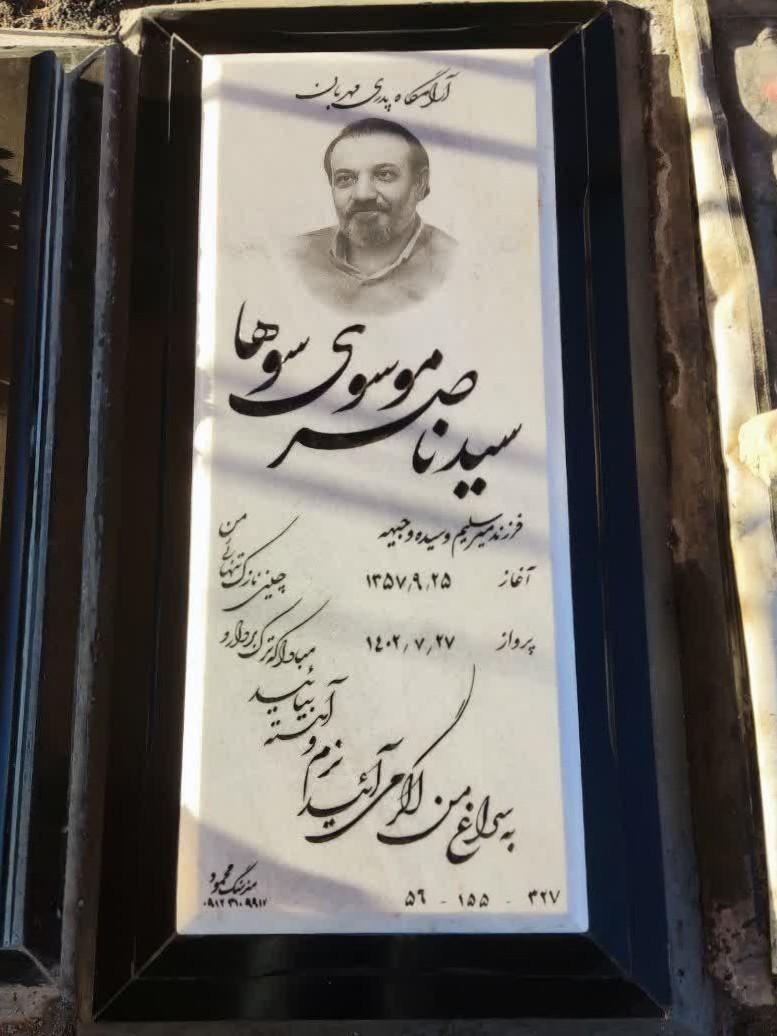 آرامگاه پدری مهربان
سید ناصر موسوی سوها
فرزند میرسلیم و سیده وجیهه
آغاز ۱۳۵۷٫۹٫۲۵
پرواز ۱۴۰۲٫۷٫۲۷
به سراغ من اگر می آئید
نرم و آهسته بیائید
مبادا که ترک بردارد
چینی نازک تنهائی من
۳۲۷ - ۱۵۵ - ۵۶
هنر سنگ محمود
۰۹۱۲ ۳۱۰ ۹۹۱۷